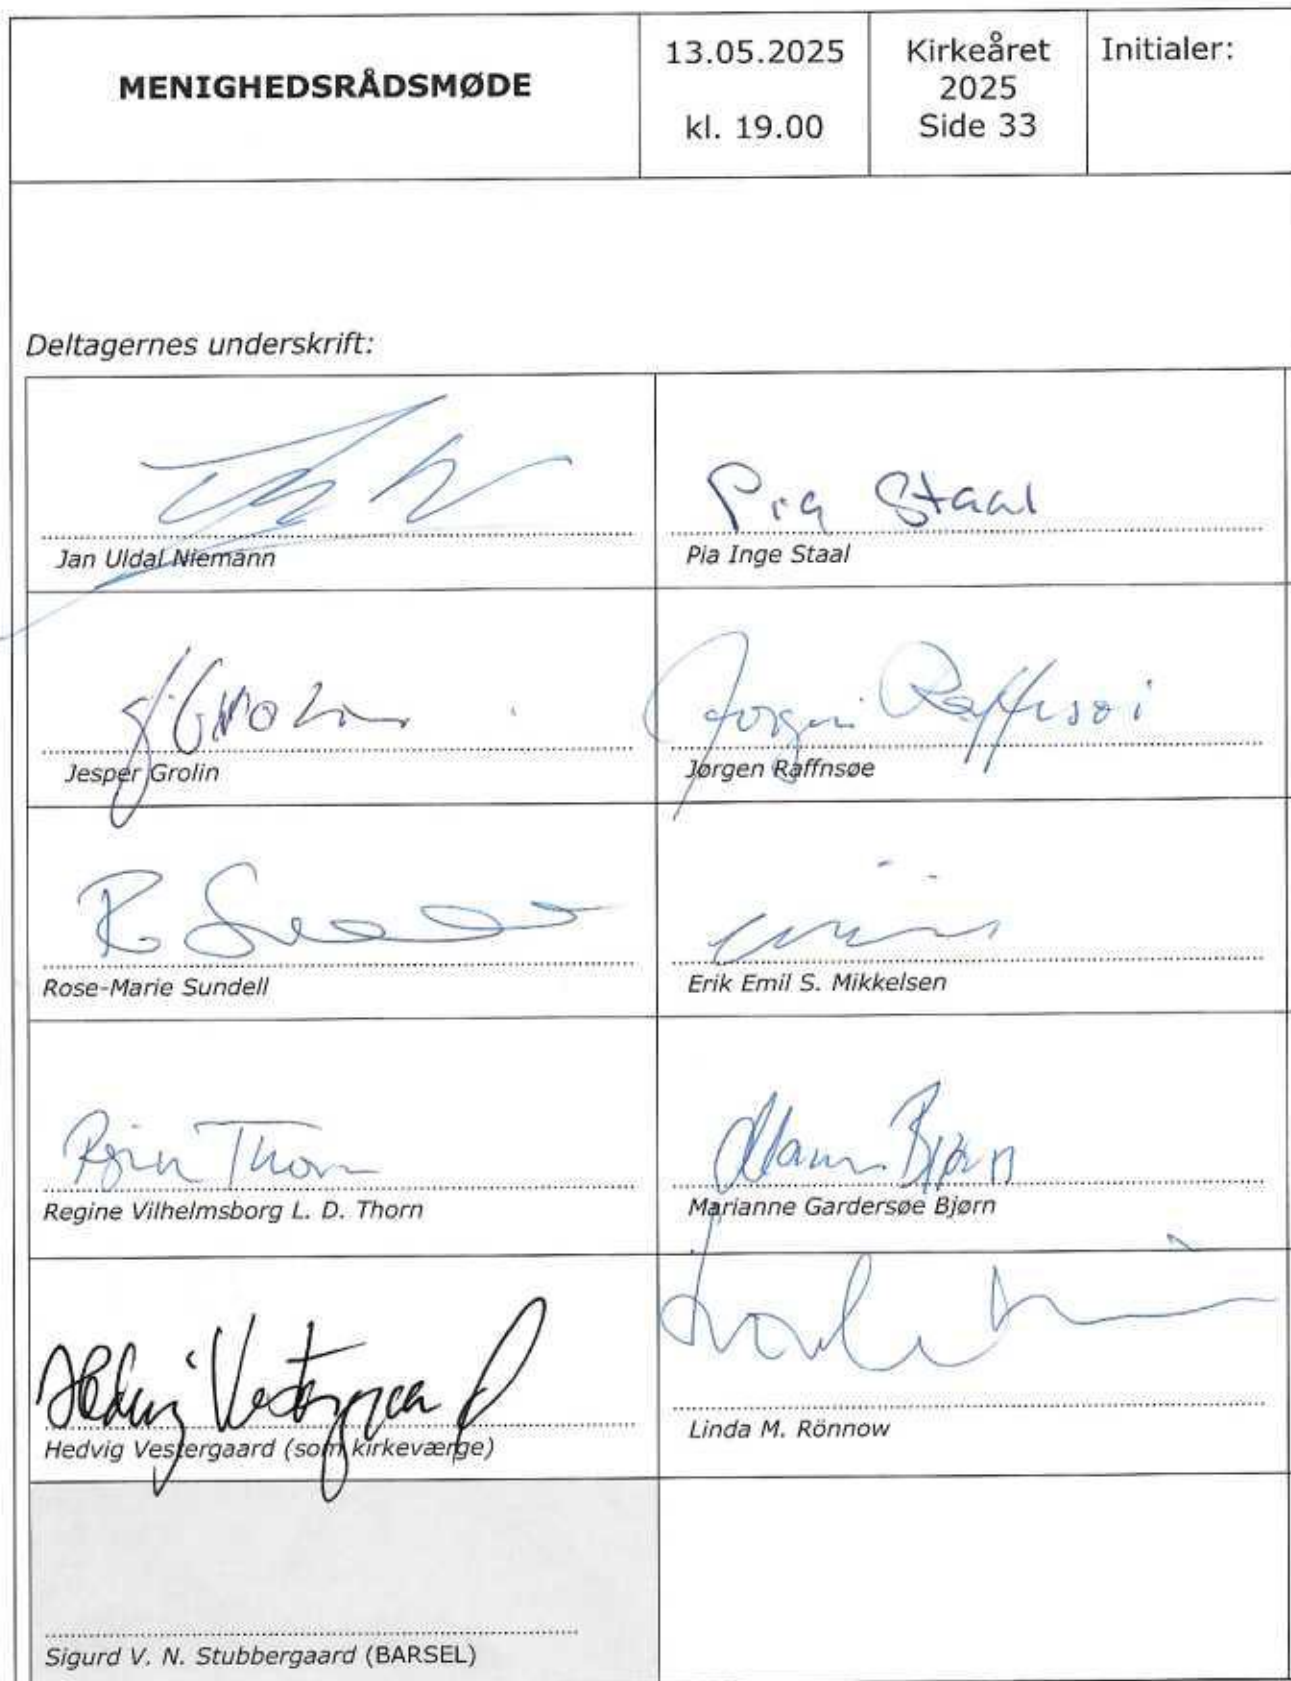 MENIGHEDSRÅDSMØDE
13.05.2025
kl. 19.00
Kirkeåret
2025
Side 33
Initialer:
Deltagernes underskrift:
Jan Uldal Niemann
Pia Staal
Pia Inge Staal
J. Grolin
Jesper Grolin
Jørgen Raffnsøe
Jørgen Raffnsøe
R Sundell
Rose-Marie Sundell
Erik Emil S. Mikkelsen
Regine Thorn
Regine Vilhelmsborg L. D. Thorn
Bjørn
Marianne Gardersøe Bjørn
Hedvig Vestergaard
Hedvig Vestergaard (som kirkeværge)
Linda M. Rönnow
Sigurd V. N. Stubbergaard (BARSEL)